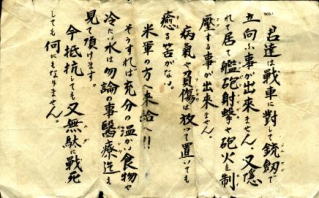 君達は戦車に對して銃劍で
立向ふ事が出来ません、又隠
れて居て艦砲射撃や砲火も制
壓する事が出来ません、
病氣や負傷は放って置いても
癒る筈がない。
米軍の方へ来給へ!!
そうすれば充分の温かい食物や
冷たい水は勿論の事醫療迄も
見て頂けます。
今抵抗しても又無駄に戦死
しても何にもなりません